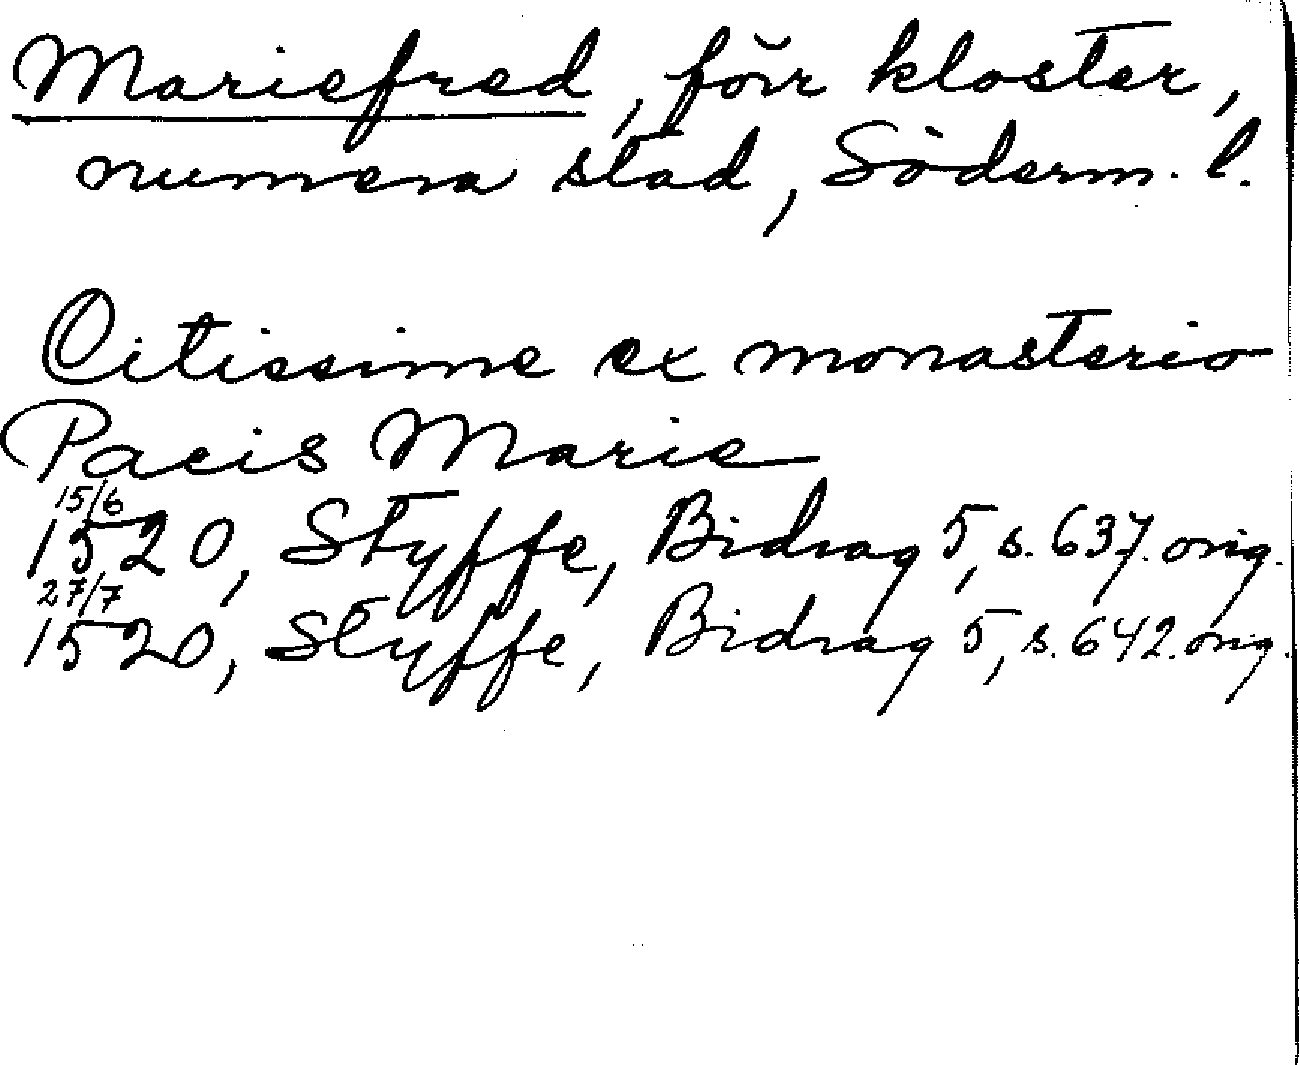 Mariefred, förr kloster,
numera stad, Söderm. l.
Citissime ex monasterio
Pacis Marie
15/6
1520, Styffe, Bidrag 5, s. 637. orig.
27/7
1520, Styffe, Bidrag 5, s. 642. orig.